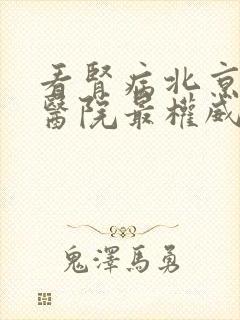 看腎病北京
醫院最權威
鬼澤馬勇